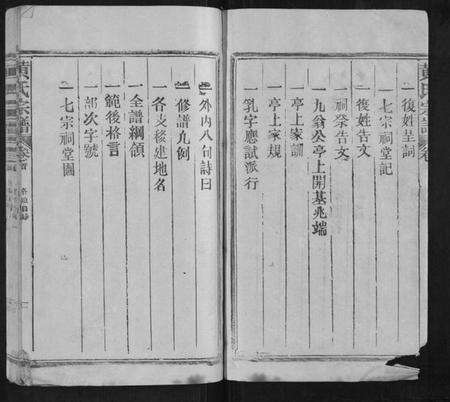 黃氏宗譜 卷首
一復姓呈詞
一七宗祠堂記
復姓告文
祠祭告文
一九翁公亭上開基兆端
亭上家訓
一亭上家規
一乳字應試派行
一外內八句詩曰
一修譜凡例
一各支移建地名
一全譜綱領
一範後格言
一部次字號
一七宗祠堂圖
黃氏宗譜 卷首